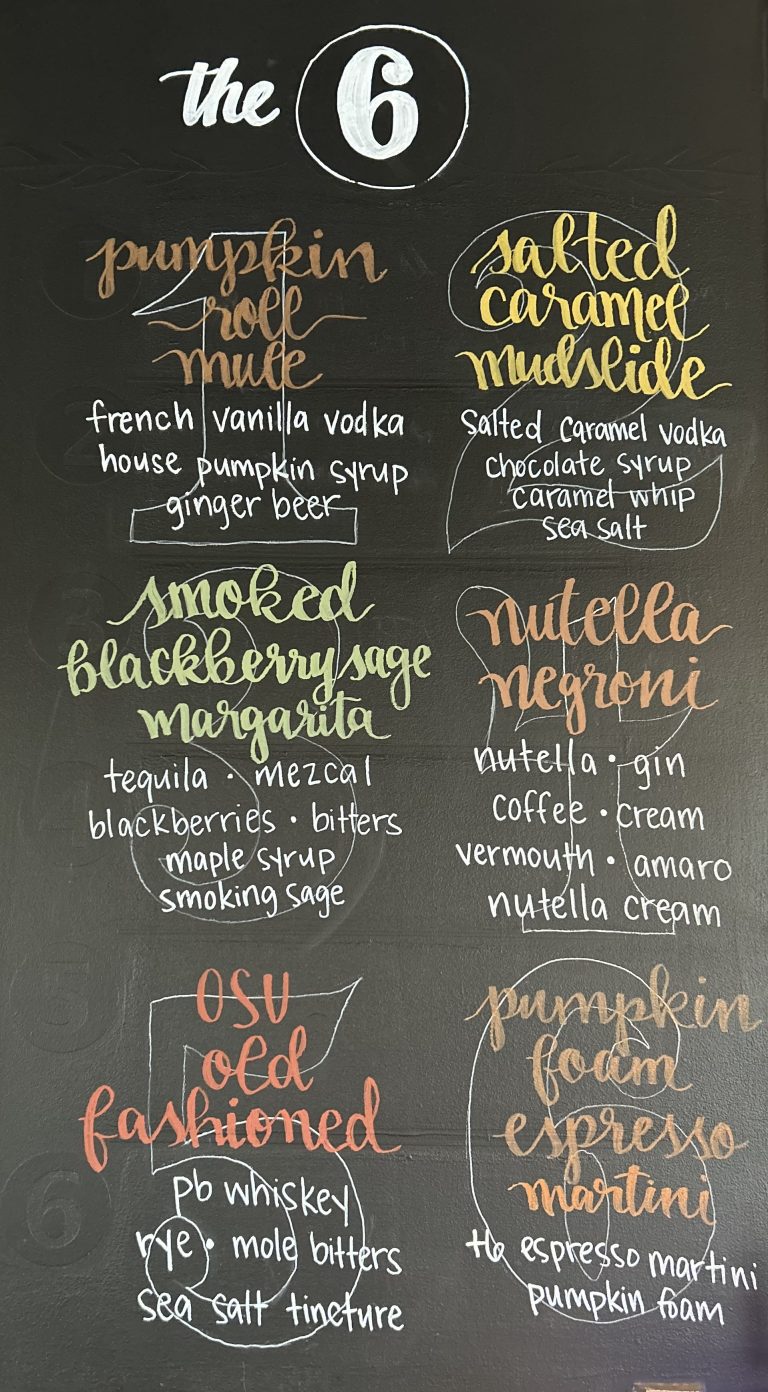 the 6
1
pumpkin
roll
mule
french vanilla vodka
house pumpkin syrup
ginger beer
2
salted
caramel
mudslide
salted caramel vodka
chocolate syrup
caramel whip
sea salt
3
smoked
blackberry sage
margarita
tequila • mezcal
blackberries • bitters
maple syrup
smoking sage
4
nutella
negroni
nutella • gin
coffee • cream
vermouth • amaro
nutella cream
5
OSU
old
fashioned
pb whiskey
rye • mole bitters
sea salt tincture
6
pumpkin
foam
espresso
martini
espresso martini
pumpkin foam